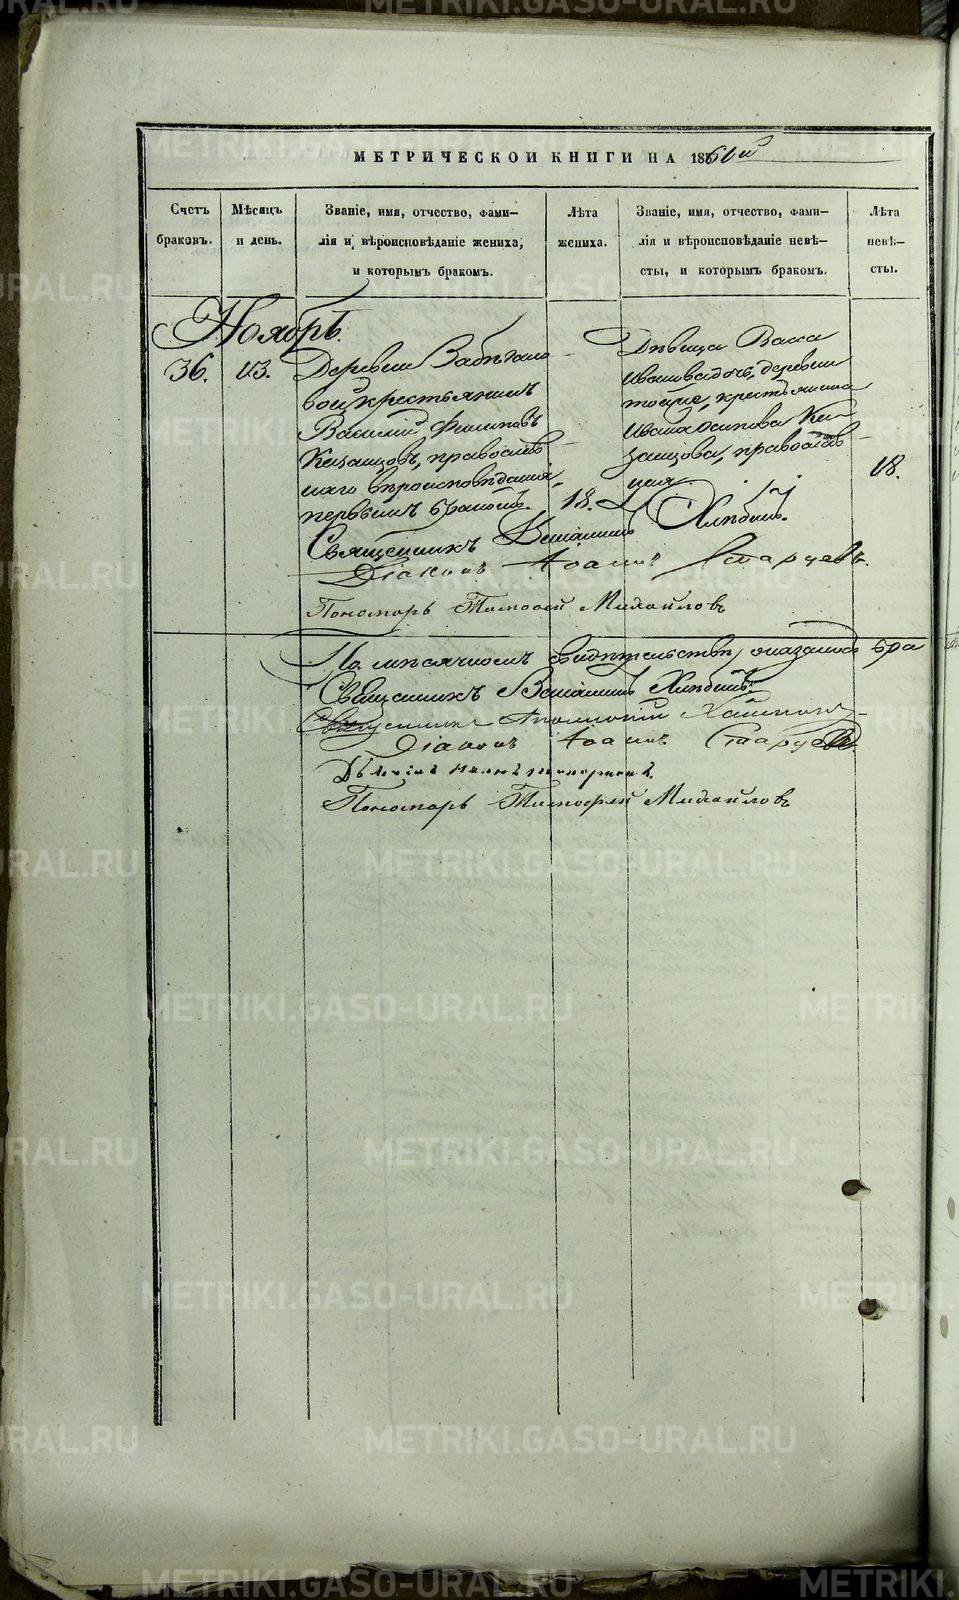 МЕТРИЧЕСКОЙ КНИГИ НА 1860й
Счетъ браковъ.
Мѣсяцъ и день.
Званіе, имя, отчество, фами-
лія и вѣроисповѣданіе жениха,
и которымъ бракомъ.
Лѣта жениха.
Званіе, имя, отчество, фами-
лія и вѣроисповѣданіе невѣ-
сты, и которымъ бракомъ.
Лѣта невѣ-
сты.
Ноябрь.
36.
13.
Деревни
вой крестьянинъ
Василій Филиповъ
Казанцовъ, православ
наго вѣроисповѣданія,
первымъ бракомъ.
18.
Дѣвица Васса
Иванова дочь, деревни
тойже, крестьянина
Ивана Осипова Ка
занцова, православ
ная
18.
Священникъ Веніаминъ Хлѣбинъ.
Діаконъ Іоаннъ Старцевъ.
Пономарь Тимофей Михайловъ
По мѣсячномъ свидѣтельствѣ, оказалось бра
Священникъ Веніаминъ Хлѣбинъ.
Священникъ
Діаконъ Іоаннъ Старцевъ.
Пономарь Тимофей Михайловъ
METRIKI.GASO-URAL.RU